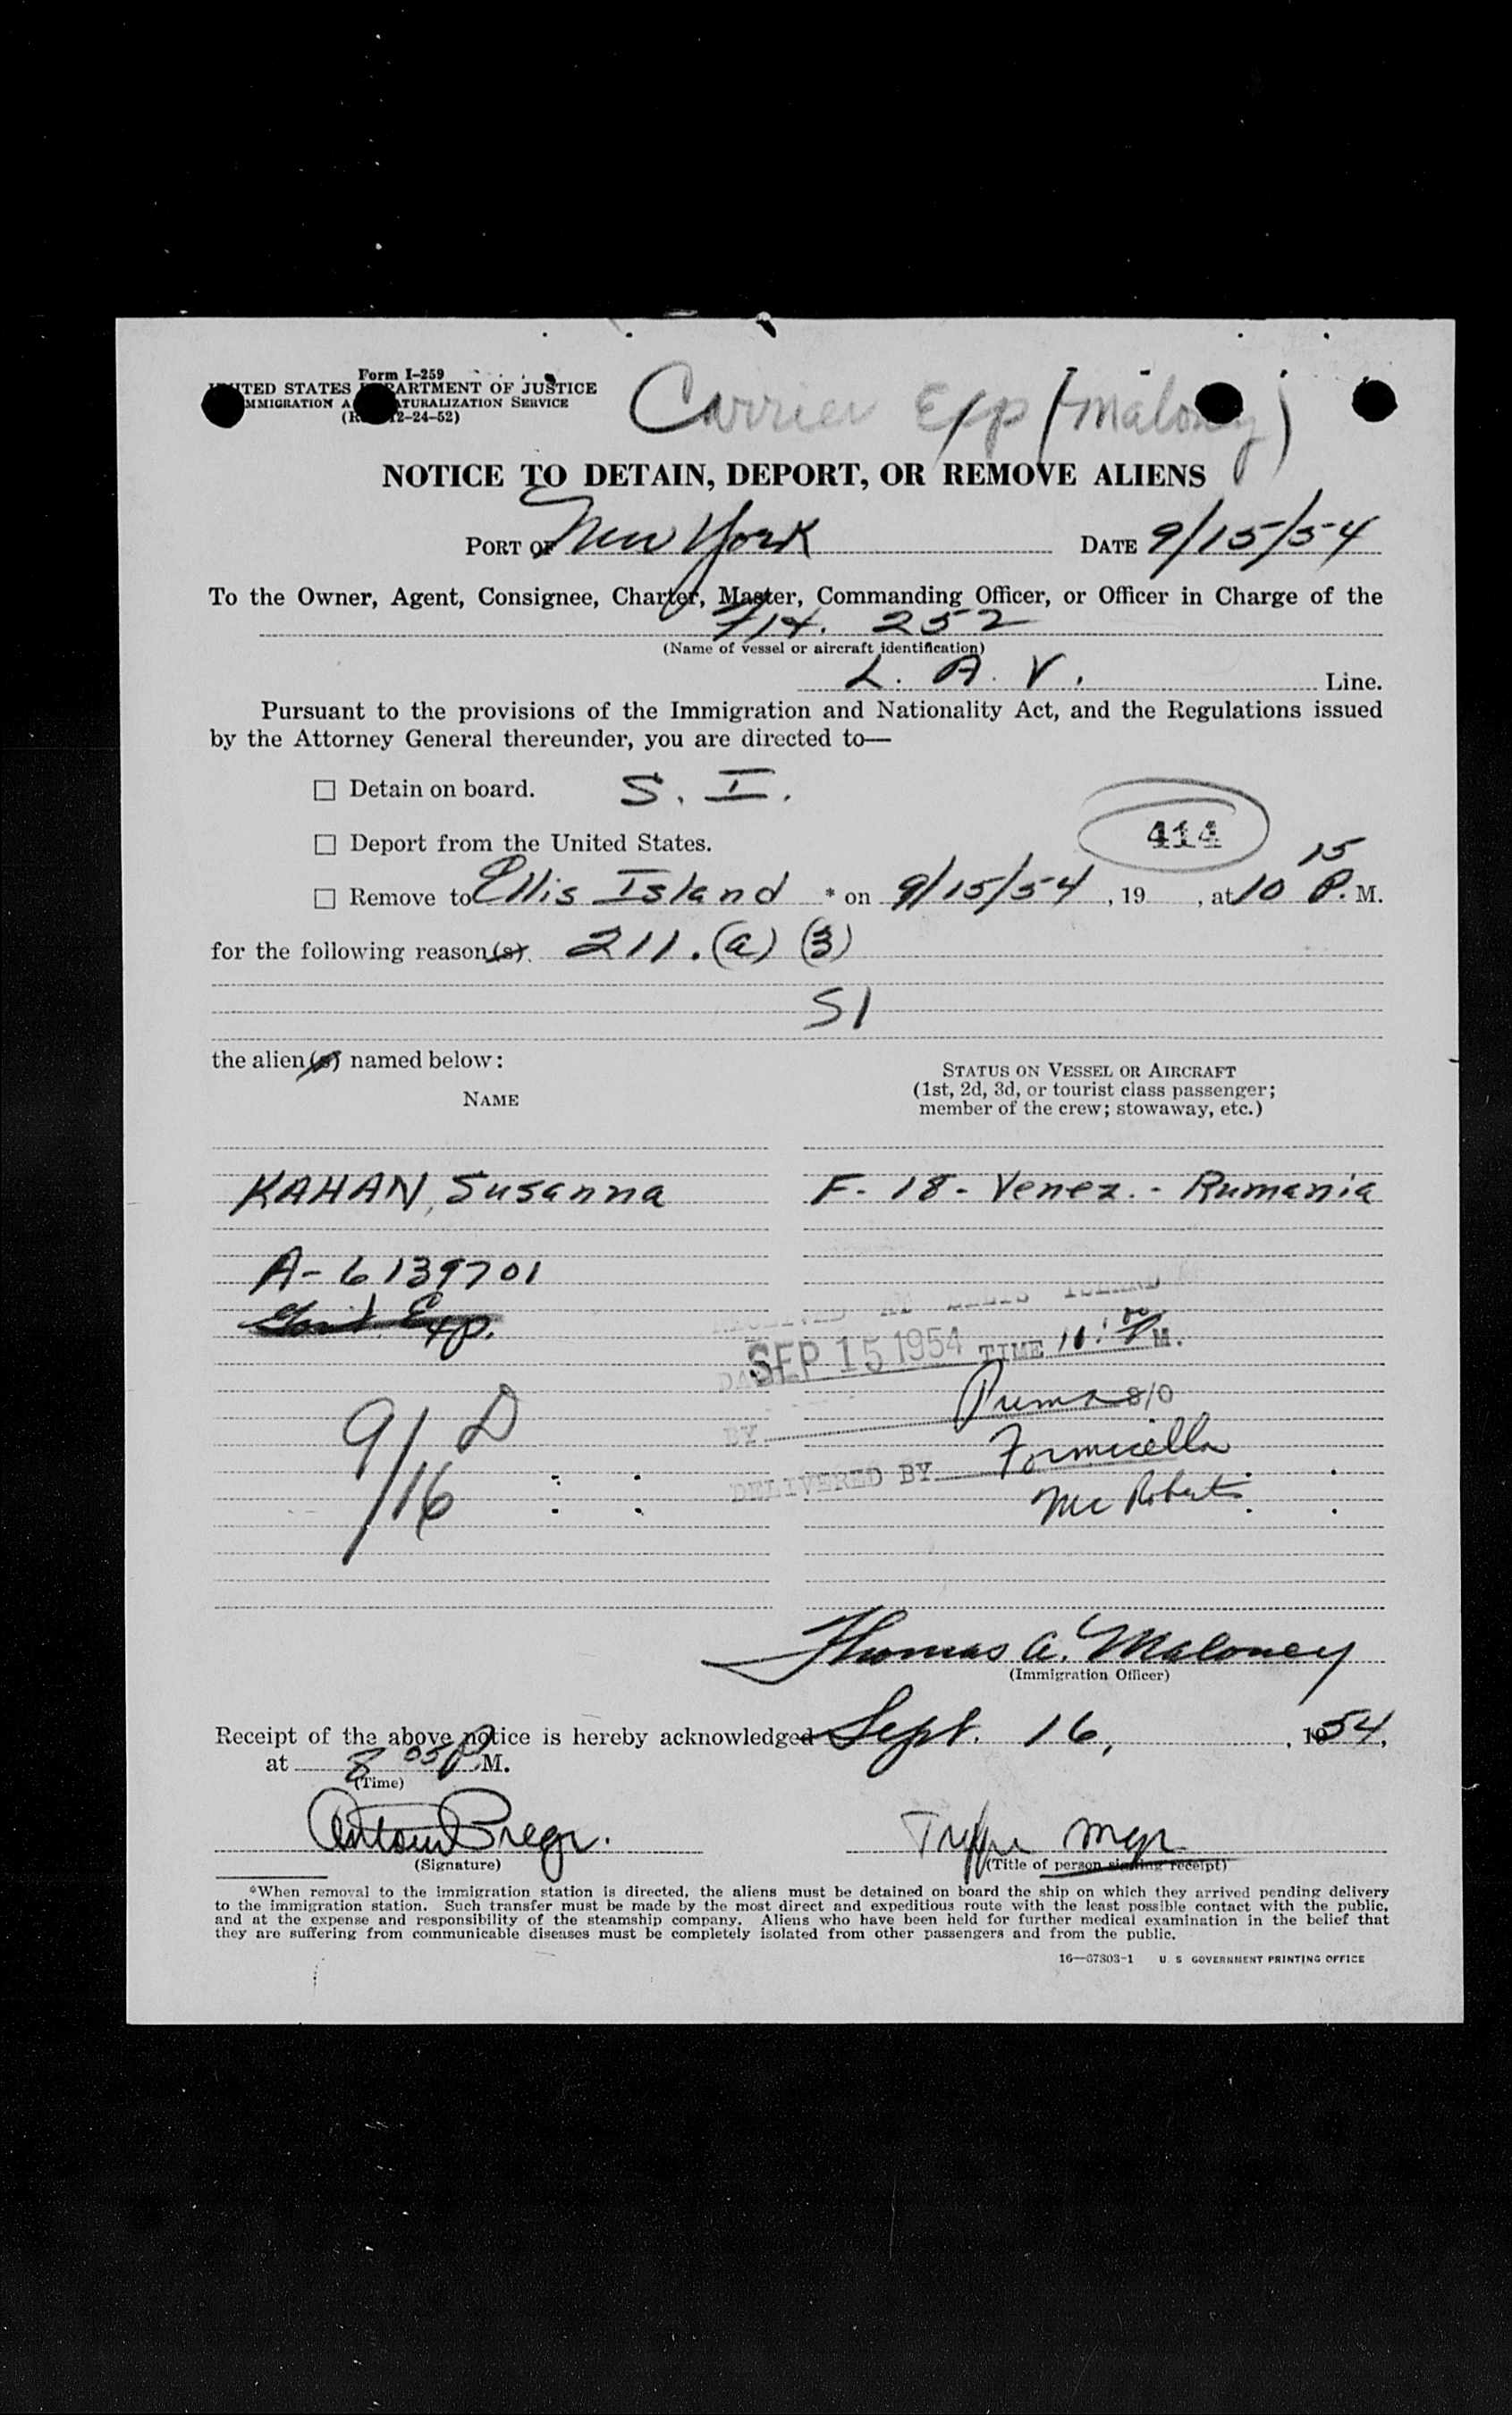 Form I-259
UNITED STATES DEPARTMENT OF JUSTICE
IMMIGRATION AND NATURALIZATION SERVICE
12-24-52)
Carrier Exp (Maloney)
NOTICE TO DETAIN, DEPORT, OR REMOVE ALIENS
PORT OF New York DATE 9/15/54
To the Owner, Agent, Consignee, Charter, Master, Commanding Officer, or Officer in Charge of the
Flt. 252
(Name of vessel or aircraft identification)
L. A. V. Line.
Pursuant to the provisions of the Immigration and Nationality Act, and the Regulations issued
by the Attorney General thereunder, you are directed to—
☐ Detain on board. S. I.
☐ Deport from the United States. 414
☐ Remove to Ellis Island * on 9/15/54, 19 , at 10 15 P. M.
for the following reason(s). 211.(a) (3)
SI
the alien(s) named below:
NAME
STATUS ON VESSEL OR AIRCRAFT
(1st, 2d, 3d, or tourist class passenger;
member of the crew; stowaway, etc.)
KAHAN, Susanna F- 18- Venez. - Rumania
A- 6139701
Govt. Exp.
RECEIVED AT ELLIS ISLAND
DATE SEP 15 1954 TIME 11:00 P M.
BY S/O
DELIVERED BY Formicella
Mc Roberts
9/16 D
Thomas A. Maloney
(Immigration Officer)
Receipt of the above notice is hereby acknowledged Sept. 16, , 1954,
at 8 05 P.M.
(Time)
Mgr.
(Signature)
(Title of person signing receipt)
*When removal to the immigration station is directed, the aliens must be detained on board the ship on which they arrived pending delivery
to the immigration station. Such transfer must be made by the most direct and expeditious route with the least possible contact with the public,
and at the expense and responsibility of the steamship company. Aliens who have been held for further medical examination in the belief that
they are suffering from communicable diseases must be completely isolated from other passengers and from the public.
16—67803-1 U. S. GOVERNMENT PRINTING OFFICE